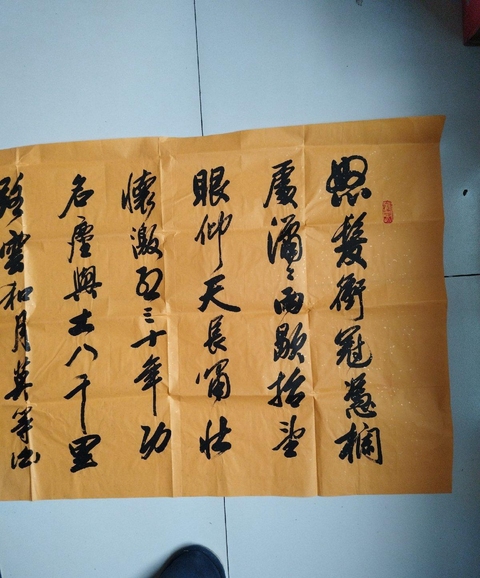 怒髮衝冠憑欄
處瀟瀟雨歇抬望
眼仰天長嘯壯
懷激烈三十年功
名塵與土八千里
路雲和月莫等閒